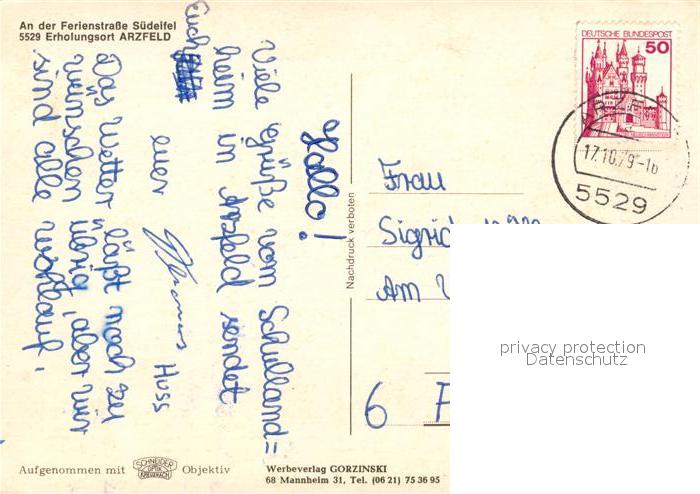 An der Ferienstraße Südeifel
5529 Erholungsort ARZFELD
Hallo!
Viele Grüße vom Schulland=
heim in Arzfeld sendet
Euch
euer Thomas Huss
Das Wetter läßt noch zu
wünschen übrig, aber wir
sind alle wohlauf.
Nachdruck verboten
DEUTSCHE BUNDESPOST
50
17.10.79-16
5529
Frau
Sigrid
Am
6 F
privacy protection
Datenschutz
Aufgenommen mit SCHNEIDER OPTIK KREUZNACH Objektiv
Werbeverlag GORZINSKI
68 Mannheim 31, Tel. (06 21) 75 36 95